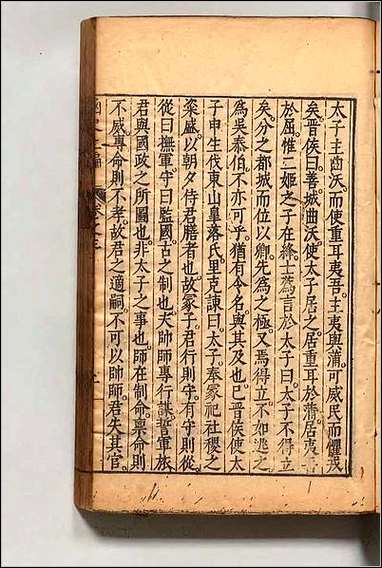 太子主曲沃。而使重耳夷吾。主夷與蒲。可威民而懼戎
矣。晉侯曰。善。城曲沃。使太子居之。居重耳於蒲。居夷吾
於屈。惟二姬之子在絳。士蒍言於太子曰。太子不得立
矣。分之都城而位以卿。先為之極。又焉得立。不如逃之
為吳泰伯。不亦可乎。猶有令名。與其及也。已晉侯使太
子申生伐東山臯落氏。里克諫曰。太子奉冢祀社稷之
粢盛。以朝夕侍君膳者也。故冢子君行則守。有守則從
從曰撫軍。守曰監國。古之制也。夫帥師專行謀誓軍旅
君與國政之所圖也。非太子之事也。師在制命。稟命則
不威。專命則不孝。故君之適嗣。不可以帥師。君失其官